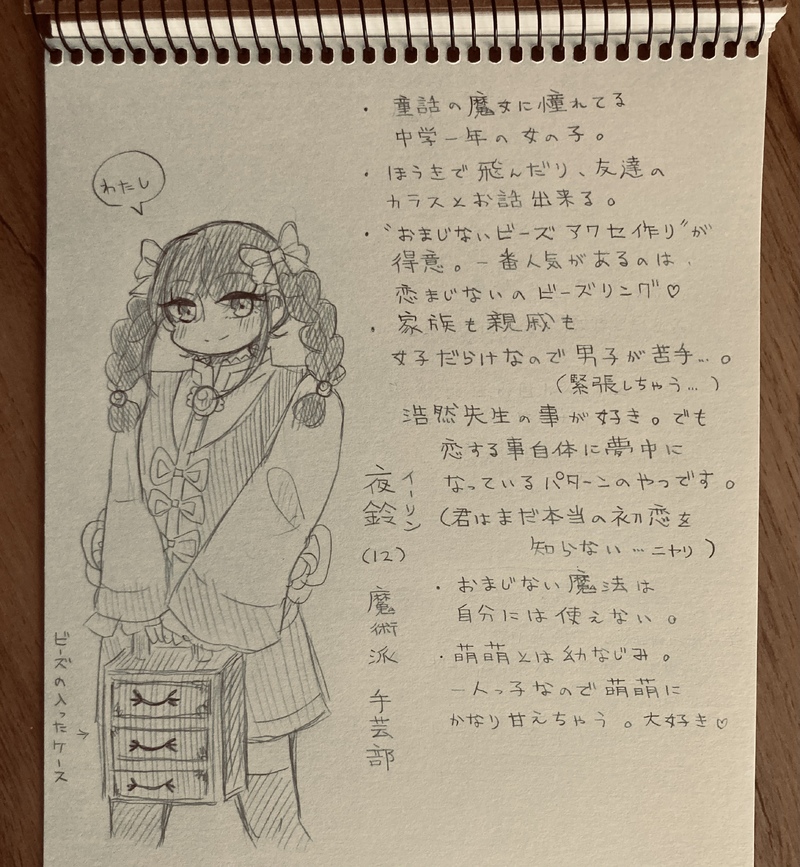 わたし
・童話の魔女に憧れてる
中学一年の女の子。
・ほうきで飛んだり、友達の
カラスとお話出来る。
・"おまじないビーズアクセ作り"が
得意。一番人気があるのは、
恋まじないのビーズリング♡
・家族も親戚も
女子だらけなので男子が苦手…。
(緊張しちゃう…)
浩然先生の事が好き。でも
恋する事自体に夢中に
なっているパターンのやつです。
(君はまだ本当の初恋を
知らない…ニヤリ)
夜鈴
イーリン
(12)
魔術派 手芸部
・おまじない魔法は
自分には使えない。
・萌萌とは幼なじみ。
一人っ子なので萌萌に
かなり甘えちゃう。大好き♡
ビーズの入ったケース→